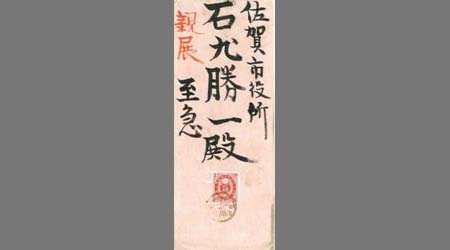 佐賀市役所
石九勝一殿
至急
親展